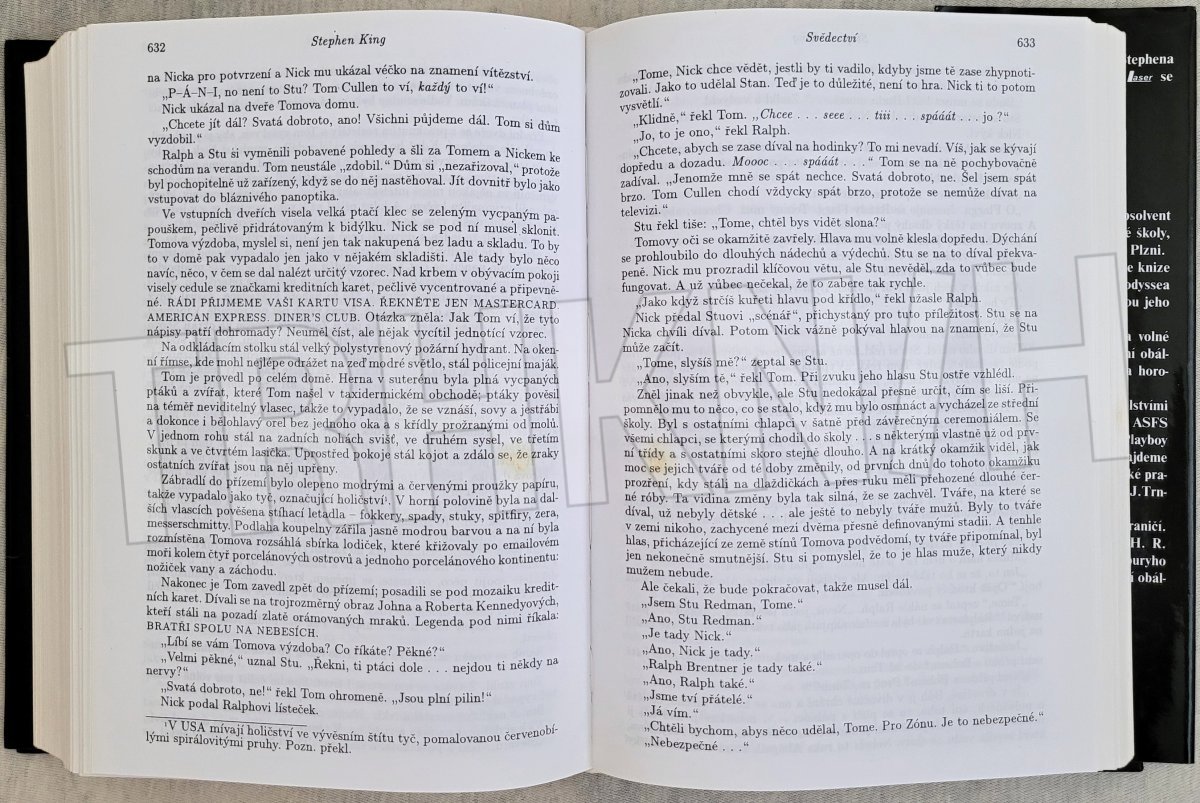 632
Stephen King
na Nicka pro potvrzení a Nick mu ukázal véčko na znamení vítězství.
„P–Á–N–I, no není to Stu? Tom Cullen to ví, každý to ví!“
Nick ukázal na dveře Tomova domu.
„Chcete jít dál? Svatá dobroto, ano! Všichni půjdeme dál. Tom si dům
vyzdobil.“
Ralph a Stu si vyměnili pobavené pohledy a šli za Tomem a Nickem ke
schodům na verandu. Tom neustále „zdobil.“ Dům si „nezařizoval,“ protože
byl pochopitelně už zařízený, když se do něj nastěhoval. Jít dovnitř bylo jako
vstupovat do bláznivého panoptika.
Ve vstupních dveřích visela velká ptačí klec se zeleným vycpaným pa-
pouškem, pečlivě přidrátovaným k bidýlku. Nick se pod ní musel sklonit.
Tomova výzdoba, myslel si, není jen tak nakupená bez ladu a skladu. To by
to v domě pak vypadalo jen jako v nějakém skladišti. Ale tady bylo něco
navíc, něco, v čem se dal nalézt určitý vzorec. Nad krbem v obývacím pokoji
visely cedule se značkami kreditních karet, pečlivě vycentrované a připevně-
né. RÁDI PŘIJMEME VAŠI KARTU VISA. ŘEKNĚTE JEN MASTERCARD.
AMERICAN EXPRESS. DINER’S CLUB. Otázka zněla: Jak Tom ví, že tyto
nápisy patří dohromady? Neuměl číst, ale nějak vycítil jednotící vzorec.
Na odkládacím stolku stál velký polystyrenový požární hydrant. Na oken-
ní římse, kde mohl nejlépe odrážet na zeď modré světlo, stál policejní maják.
Tom je provedl po celém domě. Herna v suterénu byla plná vycpaných
ptáků a zvířat, které Tom našel v taxidermickém obchodě; ptáky pověsil
na téměř neviditelný vlasec, takže to vypadalo, že se vznáší, sovy a jestřábi
a dokonce i bělohlavý orel bez jednoho oka a s křídly prožranými od molů.
V jednom rohu stál na zadních nohách svišť, ve druhém sysel, ve třetím
skunk a ve čtvrtém lasička. Upostřed pokoje stál kojot a zdálo se, že zraky
ostatních zvířat jsou na něj upřeny.
Zábradlí do přízemí bylo olepeno modrými a červenými proužky papíru,
takže vypadalo jako tyč, označující holičství¹. V horní polovině byla na dal-
ších vlascích pověšena stíhací letadla – fokkery, spady, stuky, spitfiry, zera,
messerschmitty. Podlaha koupelny zářila jasně modrou barvou a na ní byla
rozmístěna Tomova rozsáhlá sbírka lodiček, které křižovaly po emailovém
moři kolem čtyř porcelánových ostrovů a jednoho porcelánového kontinentu:
nožiček vany a záchodu.
Nakonec je Tom zavedl zpět do přízemí; posadili se pod mozaiku kredit-
ních karet. Dívali se na trojrozměrný obraz Johna a Roberta Kennedyových,
kteří stáli na pozadí zlatě orámovaných mraků. Legenda pod nimi říkala:
BRATŘI SPOLU NA NEBESÍCH.
„Líbí se vám Tomova výzdoba? Co říkáte? Pěkné?“
„Velmi pěkné,“ uznal Stu. „Řekni, ti ptáci dole . . . nejdou ti někdy na
nervy?“
„Svatá dobroto, ne!“ řekl Tom ohromeně. „Jsou plní pilin!“
Nick podal Ralphovi lísteček.
¹V USA mívají holičství ve vývěsním štítu tyč, pomalovanou červenobí-
lými spirálovitými pruhy. Pozn. překl.
Svědectví
633
„Tome, Nick chce vědět, jestli by ti vadilo, kdyby jsme tě zase zhypnoti-
zovali. Jako to udělal Stan. Teď je to důležité, není to hra. Nick ti to potom
vysvětlí.“
„Klidně,“ řekl Tom. „Chcee . . . seee . . . tiii . . . spááát . . . jo ?“
„Jo, to je ono,“ řekl Ralph.
„Chcete, abych se zase díval na hodinky? To mi nevadí. Víš, jak se kývají
dopředu a dozadu. Moooc . . . spááát . . .“ Tom se na ně pochybovačně
zadíval. „Jenomže mně se spát nechce. Svatá dobroto, ne. Šel jsem spát
brzo. Tom Cullen chodí vždycky spát brzo, protože se nemůže dívat na
televizi.“
Stu řekl tiše: „Tome, chtěl bys vidět slona?“
Tomovy oči se okamžitě zavřely. Hlava mu volně klesla dopředu. Dýchání
se prohloubilo do dlouhých nádechů a výdechů. Stu se na to díval překva-
peně. Nick mu prozradil klíčovou větu, ale Stu nevěděl, zda to vůbec bude
fungovat. A už vůbec nečekal, že to zabere tak rychle.
„Jako když strčíš kuřeti hlavu pod křídlo,“ řekl užasle Ralph.
Nick předal Stuovi „scénář“, přichystaný pro tuto příležitost. Stu se na
Nicka chvíli díval. Potom Nick vážně pokýval hlavou na znamení, že Stu
může začít.
„Tome, slyšíš mě?“ zeptal se Stu.
„Ano, slyším tě,“ řekl Tom. Při zvuku jeho hlasu Stu ostře vzhlédl.
Zněl jinak než obvykle, ale Stu nedokázal přesně určit, čím se liší. Při-
pomnělo mu to něco, co se stalo, když mu bylo osmnáct a vycházel ze střední
školy. Byl s ostatními chlapci v šatně před závěrečným ceremoniálem. Se
všemi chlapci, se kterými chodil do školy . . . s některými vlastně už od prv-
ní třídy a s ostatními skoro stejně dlouho. A na krátký okamžik viděl, jak
moc se jejich tváře od té doby změnily, od prvních dnů do tohoto okamžiku
prozření, kdy stáli na dlaždičkách a přes ruku měli přehozené dlouhé čer-
né róby. Ta vidina změny byla tak silná, že se zachvěl. Tváře, na které se
díval, už nebyly dětské . . . ale ještě to nebyly tváře mužů. Byly to tváře
v zemi nikoho, zachycené mezi dvěma přesně definovanými stadii. A tenhle
hlas, přicházející ze země stínů Tomova podvědomí, ty tváře připomínal, byl
jen nekonečně smutnější. Stu si pomyslel, že to je hlas muže, který nikdy
mužem nebude.
Ale čekali, že bude pokračovat, takže musel dál.
„Jsem Stu Redman, Tome.“
„Ano, Stu Redman.“
„Je tady Nick.“
„Ano, Nick je tady.“
„Ralph Brentner je tady také.“
„Ano, Ralph také.“
„Jsme tví přátelé.“
„Já vím.“
„Chtěli bychom, abys něco udělal, Tome. Pro Zónu. Je to nebezpečné.“
„Nebezpečné . . .“
tephena
Laser se
bsolvent
é školy,
Plzni.
e knize
odyssea
ou jeho
volné
ní obál-
a horo-
lstvími
ASFS
Playboy
ajdeme
ké pra-
J.Trn-
raničí.
H. R.
ouryho
í obál-
TRHKNIH